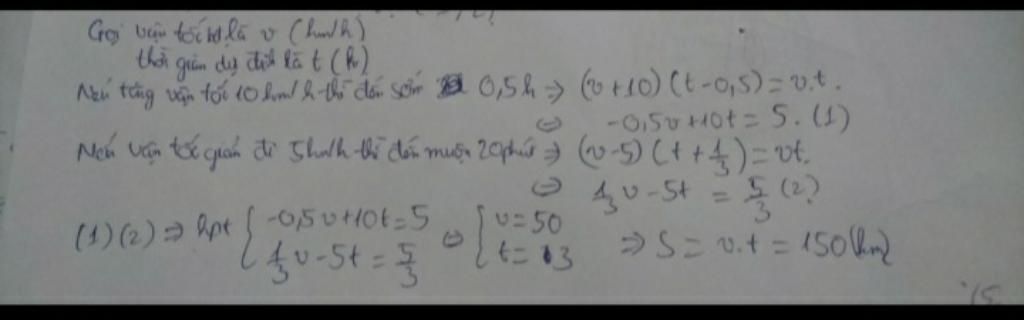 Gọi vận tốc dự định là v (km/h)
thời gian dự định là t (h)
Nếu tăng vận tốc 10 km/h thì đến sớm 0,5h => (v+10)(t-0,5)=v.t.
<=> -0,5v+10t=5. (1)
Nếu vận tốc giảm đi 5km/h thì đến muộn 20 phút => (v-5)(t+1/3)=vt.
<=> 1/3v-5t = 5/3 (2)
(1)(2) => hpt { -0,5v+10t=5 ; 1/3v-5t=5/3 <=> { v=50 ; t=3 => S = v.t = 150(km)